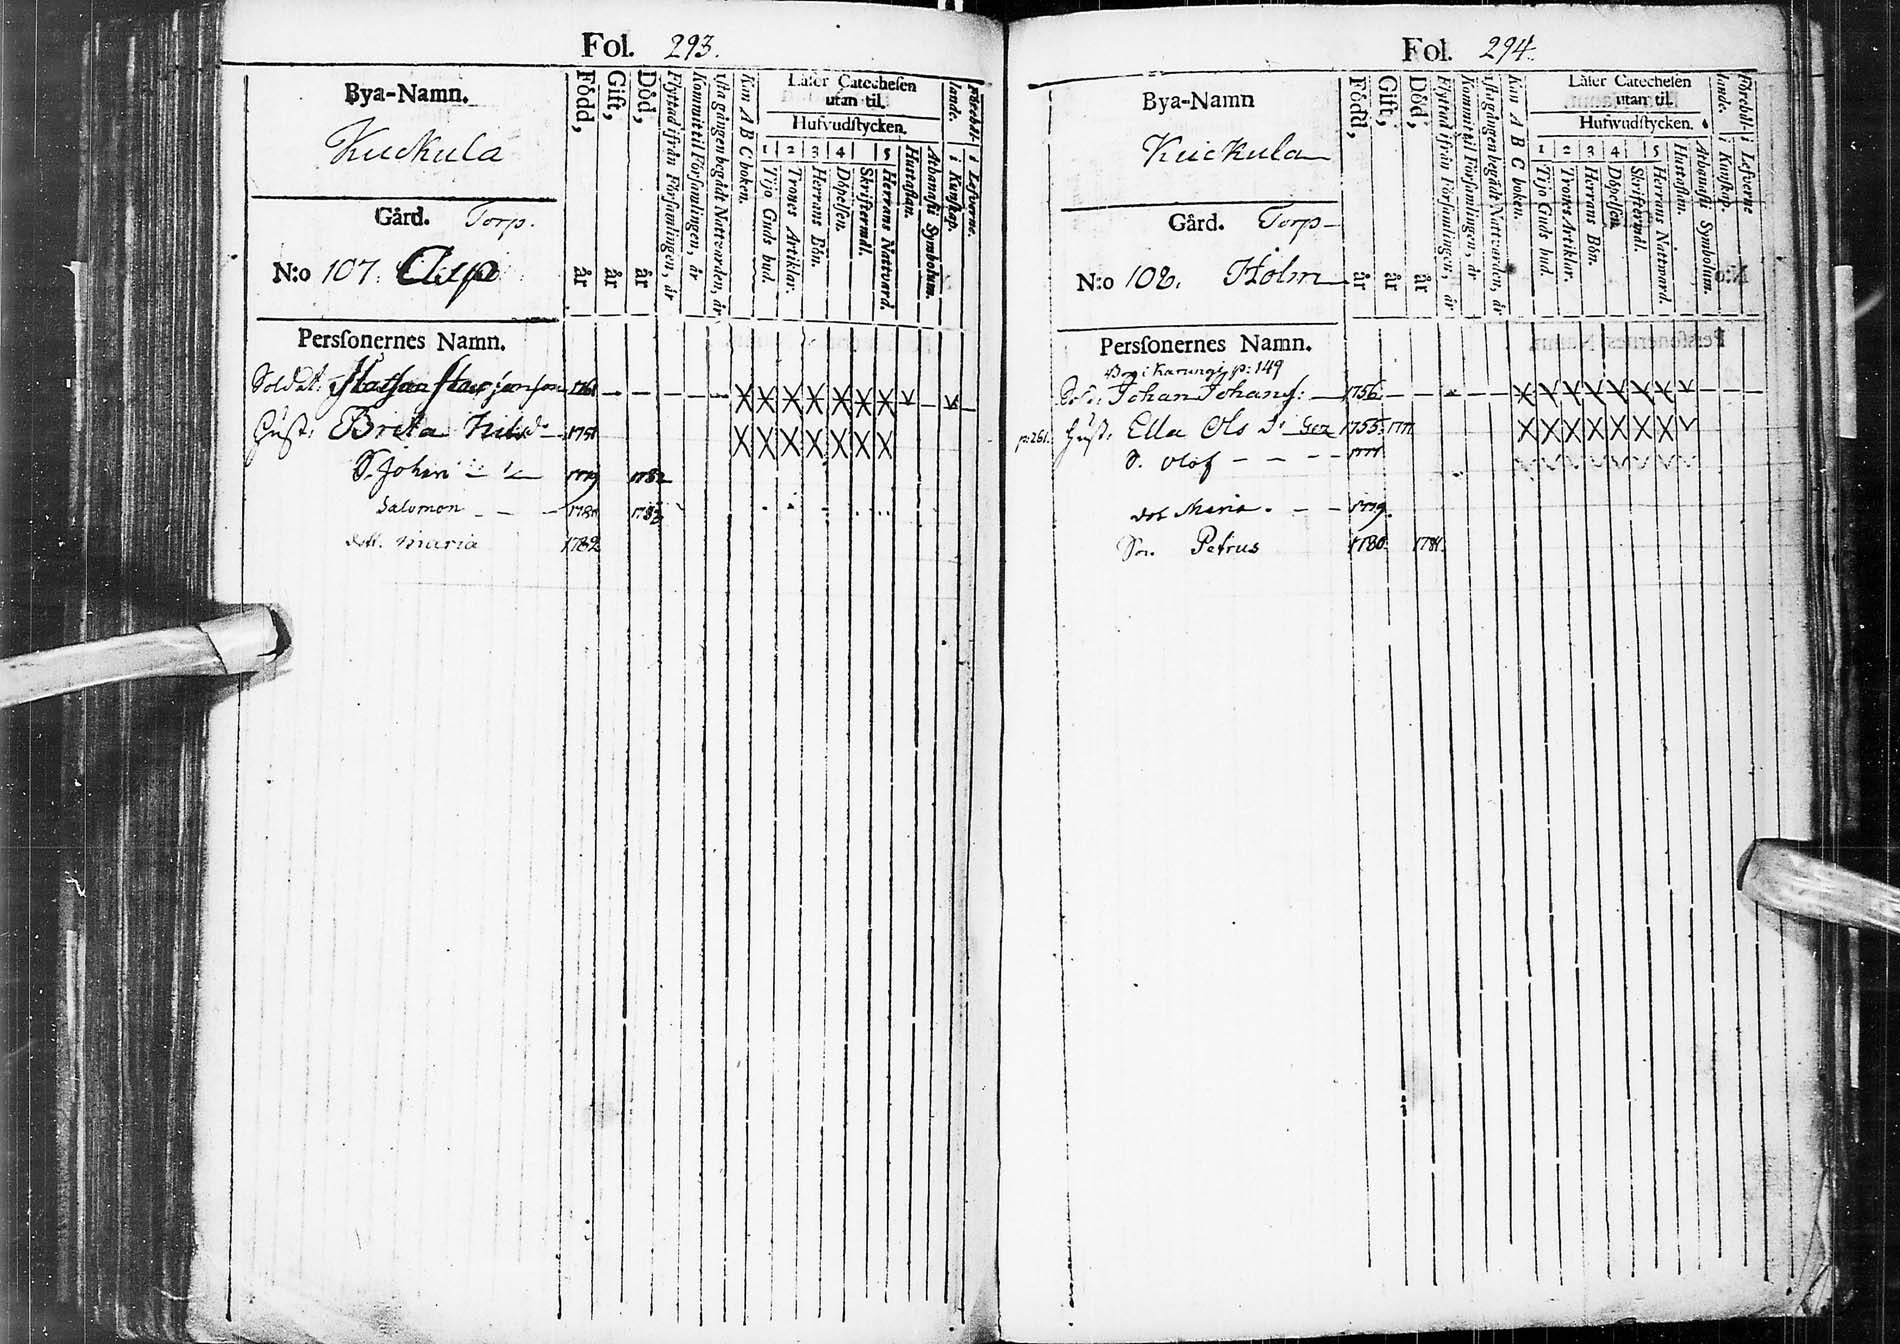 Fol. 293.
Bya-Namn.
Kuckula
Gård. Torp.
N:o 107.
Född, år
Gift, år
Död, år
Flyttad ifrån Församlingen, år
Kommit til Församlingen, år
1sta gången begådt Nattvarden, år
Kan A B C boken.
Läser Catechesen
utan til.
Hufvudstycken.
1 2 3 4 5
Tijo Guds bud.
Trones Artiklar.
Herrans Bön.
Döpelsen.
Skriftermål.
Herrans Nattvard.
Hustaflan.
Athanasii Symbolum.
Förehållande.
i Kunskap.
i Lefverne.
Personernes Namn.
Soldat.
Hust. Brita Nilsd:
S. Johan 1779 1782
Salomon - - - 1781 1783
dott. Maria 1782
Fol. 294.
Bya-Namn
Kuckula
Gård. Torp
N:o 108. Holm
Född, år
Gift, år
Död, år
Flyttad ifrån Församlingen, år
Kommit til Församlingen, år
1sta gången begådt Nattvarden, år
Kan A B C boken.
Läser Catechesen
utan til.
Hufwudstycken.
1 2 3 4 5
Tijo Guds bud.
Trones Artiklar.
Herrans Bön.
Döpelsen.
Skriftermål.
Herrans Nattward.
Hustaflan.
Athanasii Symbolum.
Förehållande.
i Kunskap.
i Lefverne
Personernes Namn.
Bor i Karungi p: 149
Sold: Johan Johans: 1756.
p: 261. Hust. Ella Ols d: 1755. 1777
S. Olof - - - 1777
dot Maria - - - 1779.
Son. Petrus 1780. 1781.